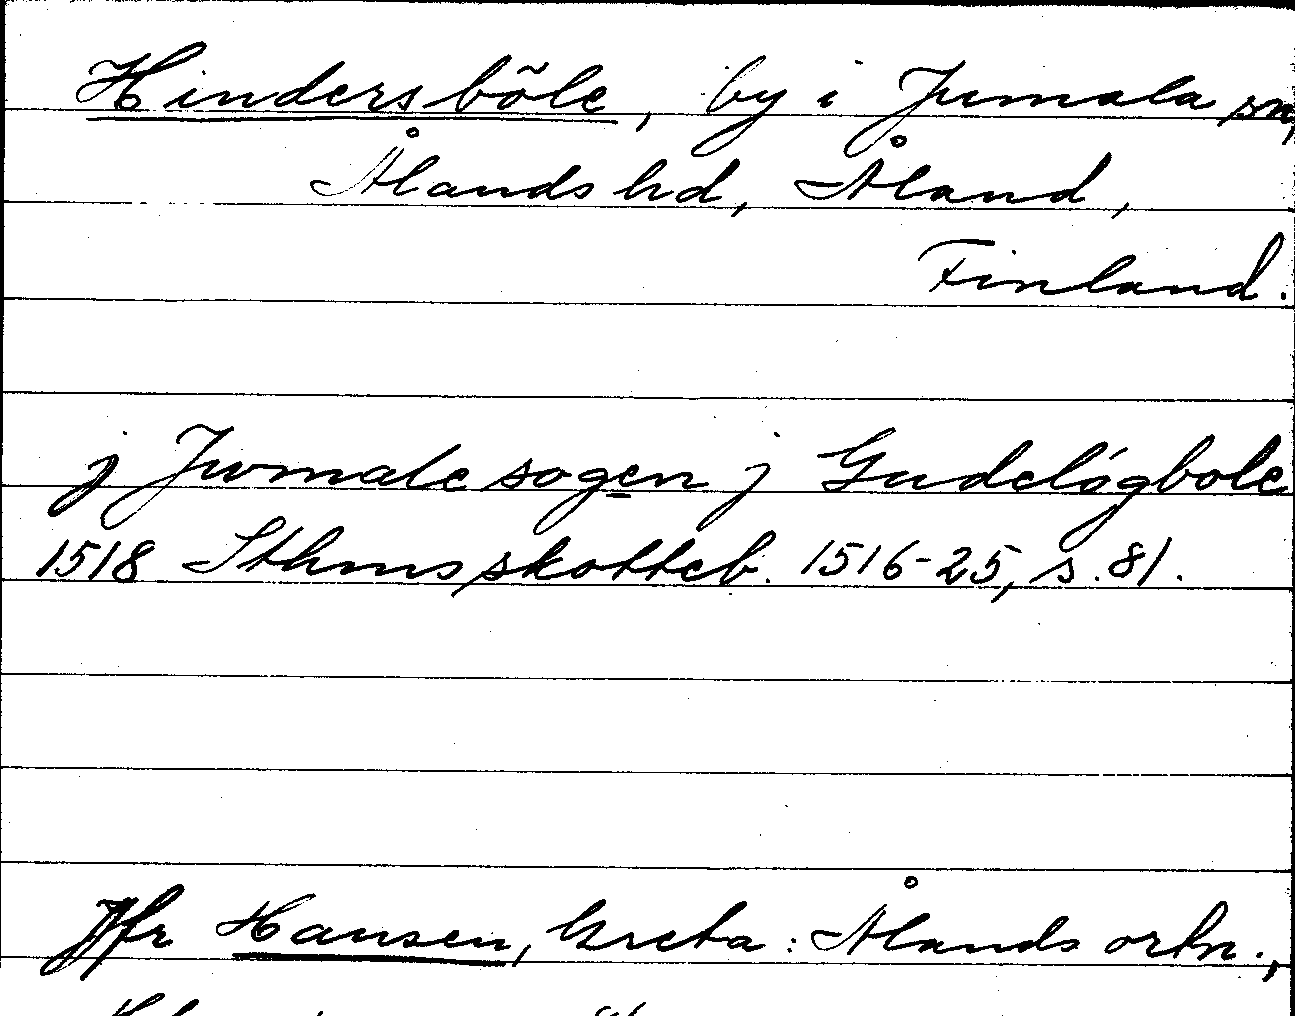 Hindersböle, by i Jumala sn,
Ålands hd, Åland,
Finland.
j Jwmale sogen j Gudeløgbole
1518 Sthms skotteb. 1516-25, s. 81.
Jfr Hausen, Greta: Ålands ortn.,